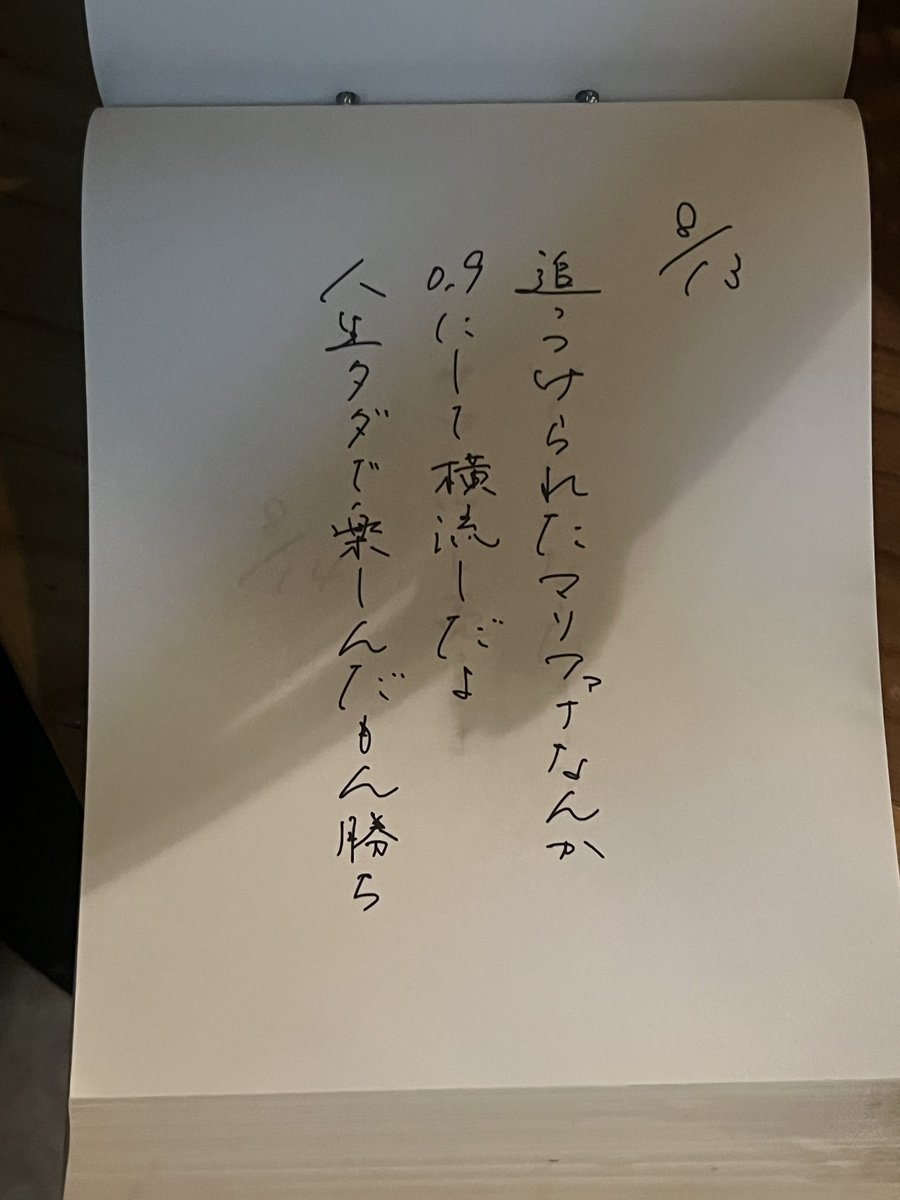 8/13
追っつけられたマリファナなんか
0.9にして横流しだよ
人生タダで楽しんだもん勝ち